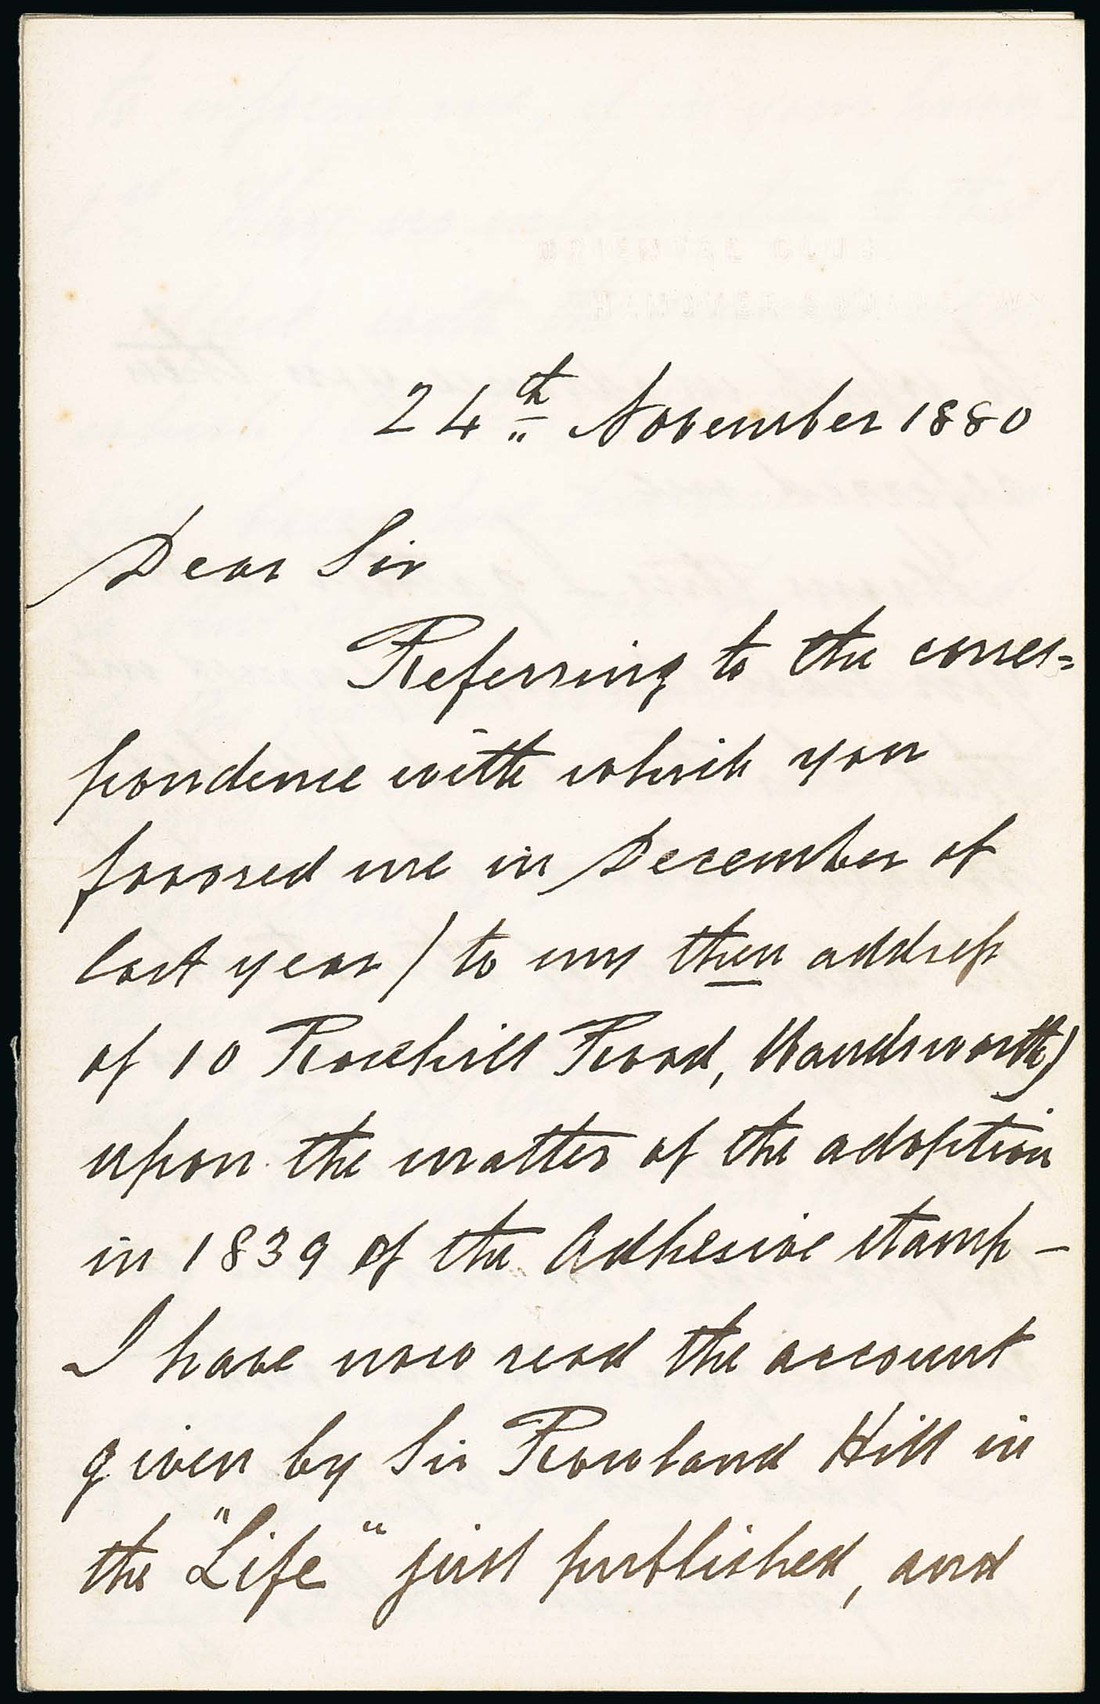 24th November 1880
Dear Sir
Referring to the corres=
pondence with which you
favored me in December of
last year (to my then address
of 10 Rosehill Road, Wandsworth)
upon the matter of the adoption
in 1839 of the Adhesive stamp –
I have now read the account
given by Sir Rowland Hill in
the "Life" just published, and